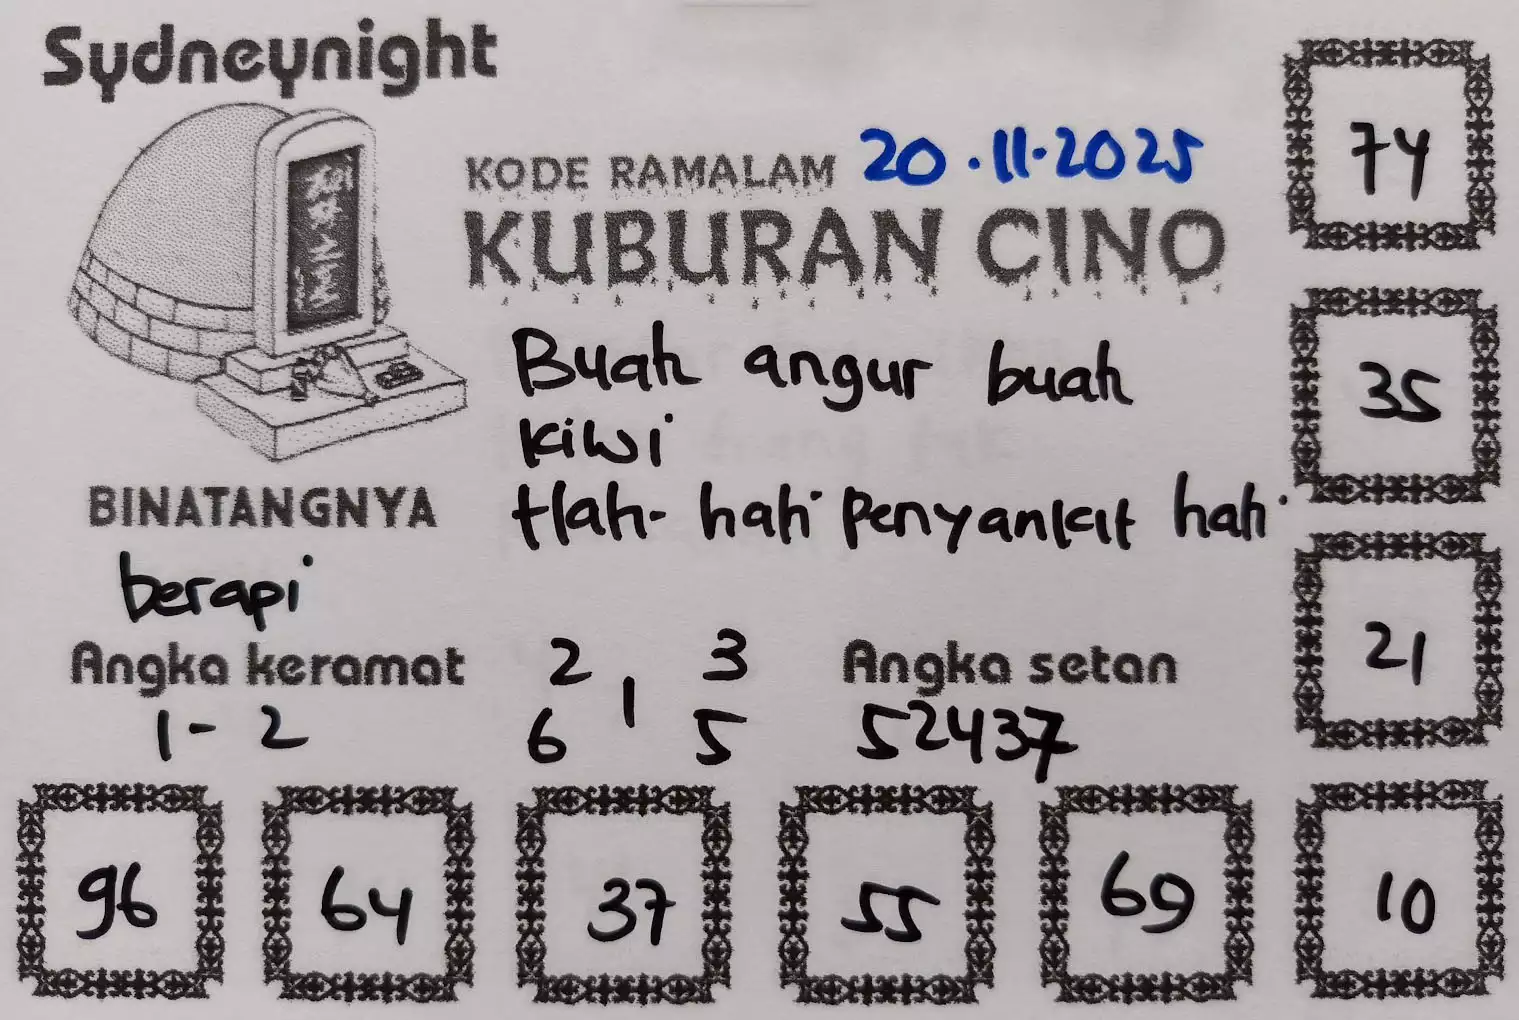 Sydneynight
KODE RAMALAM 20.11.2025
KUBURAN CINO
Buah angur buah
kiwi
Hah-hati penyankit hah
BINATANGNYA
berapi
Angka keramat
1-2
2 3
1
6 5
Angka setan
52437
74
35
21
96 64 37 55 69 10